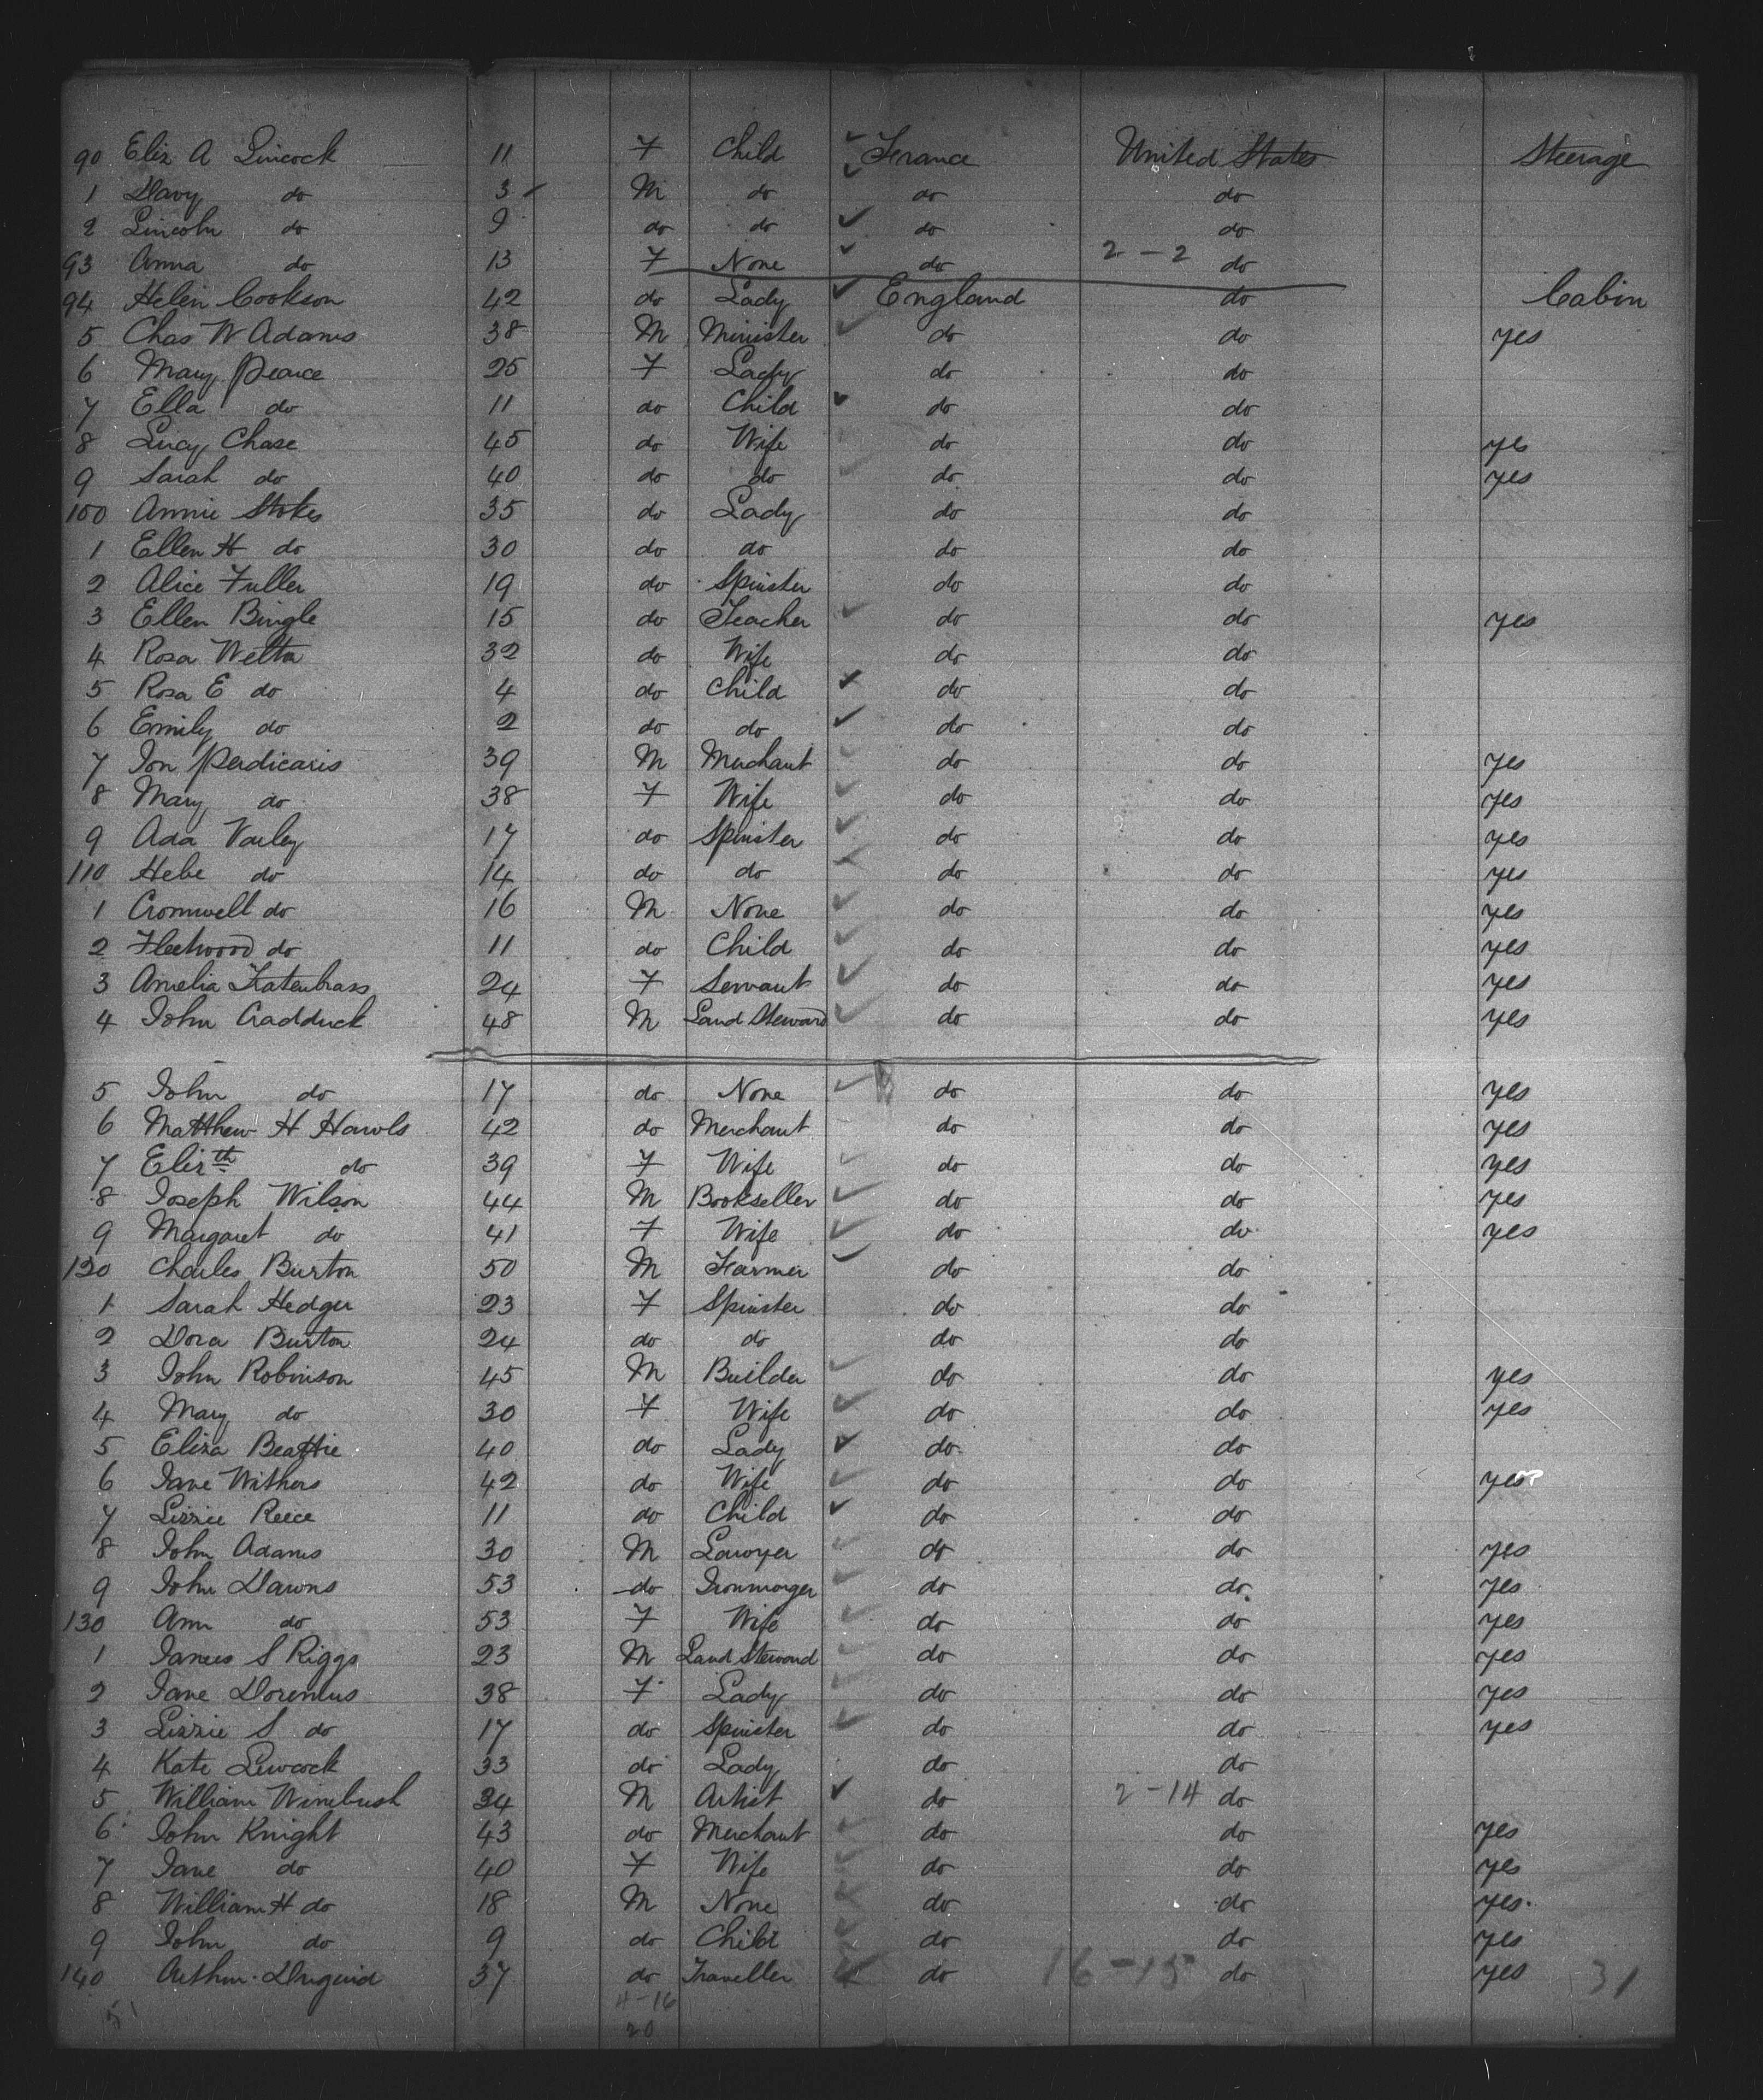 90 Eliz A Lincock 11 F Child France United States Steerage
1 Davy do 3 M do do do
2 Lincoln do 9 do do do do
93 Anna do 13 F None do 2-2 do
94 Helen Cookson 42 do Lady England do Cabin
5 Chas W Adams 38 M Minister do do yes
6 Mary Pearce 25 F Lady do do
7 Ella do 11 do Child do do
8 Lucy Chase 45 do Wife do do yes
9 Sarah do 40 do do do do yes
100 Annie Stokes 35 do Lady do do
1 Ellen H do 30 do do do do
2 Alice Fuller 19 do Spinster do do
3 Ellen Bingle 15 do Teacher do do yes
4 Rosa Welta 32 do Wife do do
5 Rosa E do 4 do Child do do
6 Emily do 2 do do do do
7 Ion Perdicaris 39 M Merchant do do yes
8 Mary do 38 F Wife do do yes
9 Ada Varley 17 do Spinster do do yes
110 Hebe do 14 do do do do yes
1 Cromwell do 16 M None do do yes
2 Fleetwood do 11 do Child do do yes
3 Amelia Katenbass 24 F Servant do do yes
4 John Cradduck 48 M Land Steward do do yes
5 John do 17 do None do do yes
6 Matthew H Hawls 42 do Merchant do do yes
7 Elizth do 39 F Wife do do yes
8 Joseph Wilson 44 M Bookseller do do yes
9 Margaret do 41 F Wife do do yes
120 Charles Burton 50 M Farmer do do
1 Sarah Hedger 23 F Spinster do do
2 Dora Burton 24 do do do do
3 John Robinson 45 M Builder do do yes
4 Mary do 30 F Wife do do yes
5 Eliza Beattie 40 do Lady do do
6 Jane Withers 42 do Wife do do yes
7 Lizzie Reece 11 do Child do do
8 John Adams 30 M Lawyer do do yes
9 John Dawns 53 do Ironmonger do do yes
130 Ann do 53 F Wife do do yes
1 James S Riggs 23 M Land Steward do do yes
2 Jane Doremus 38 F Lady do do yes
3 Lizzie S do 17 do Spinster do do yes
4 Kate Lewcock 33 do Lady do do
5 William Winebush 34 M Artist do 2-14 do
6 John Knight 43 do Merchant do do yes
7 Jane do 40 F Wife do do yes
8 William H do 18 M None do do yes
9 John do 9 do Child do do yes
140 Arthur Duguid 37 do Traveller do 16-15 do yes 31
4-16
20